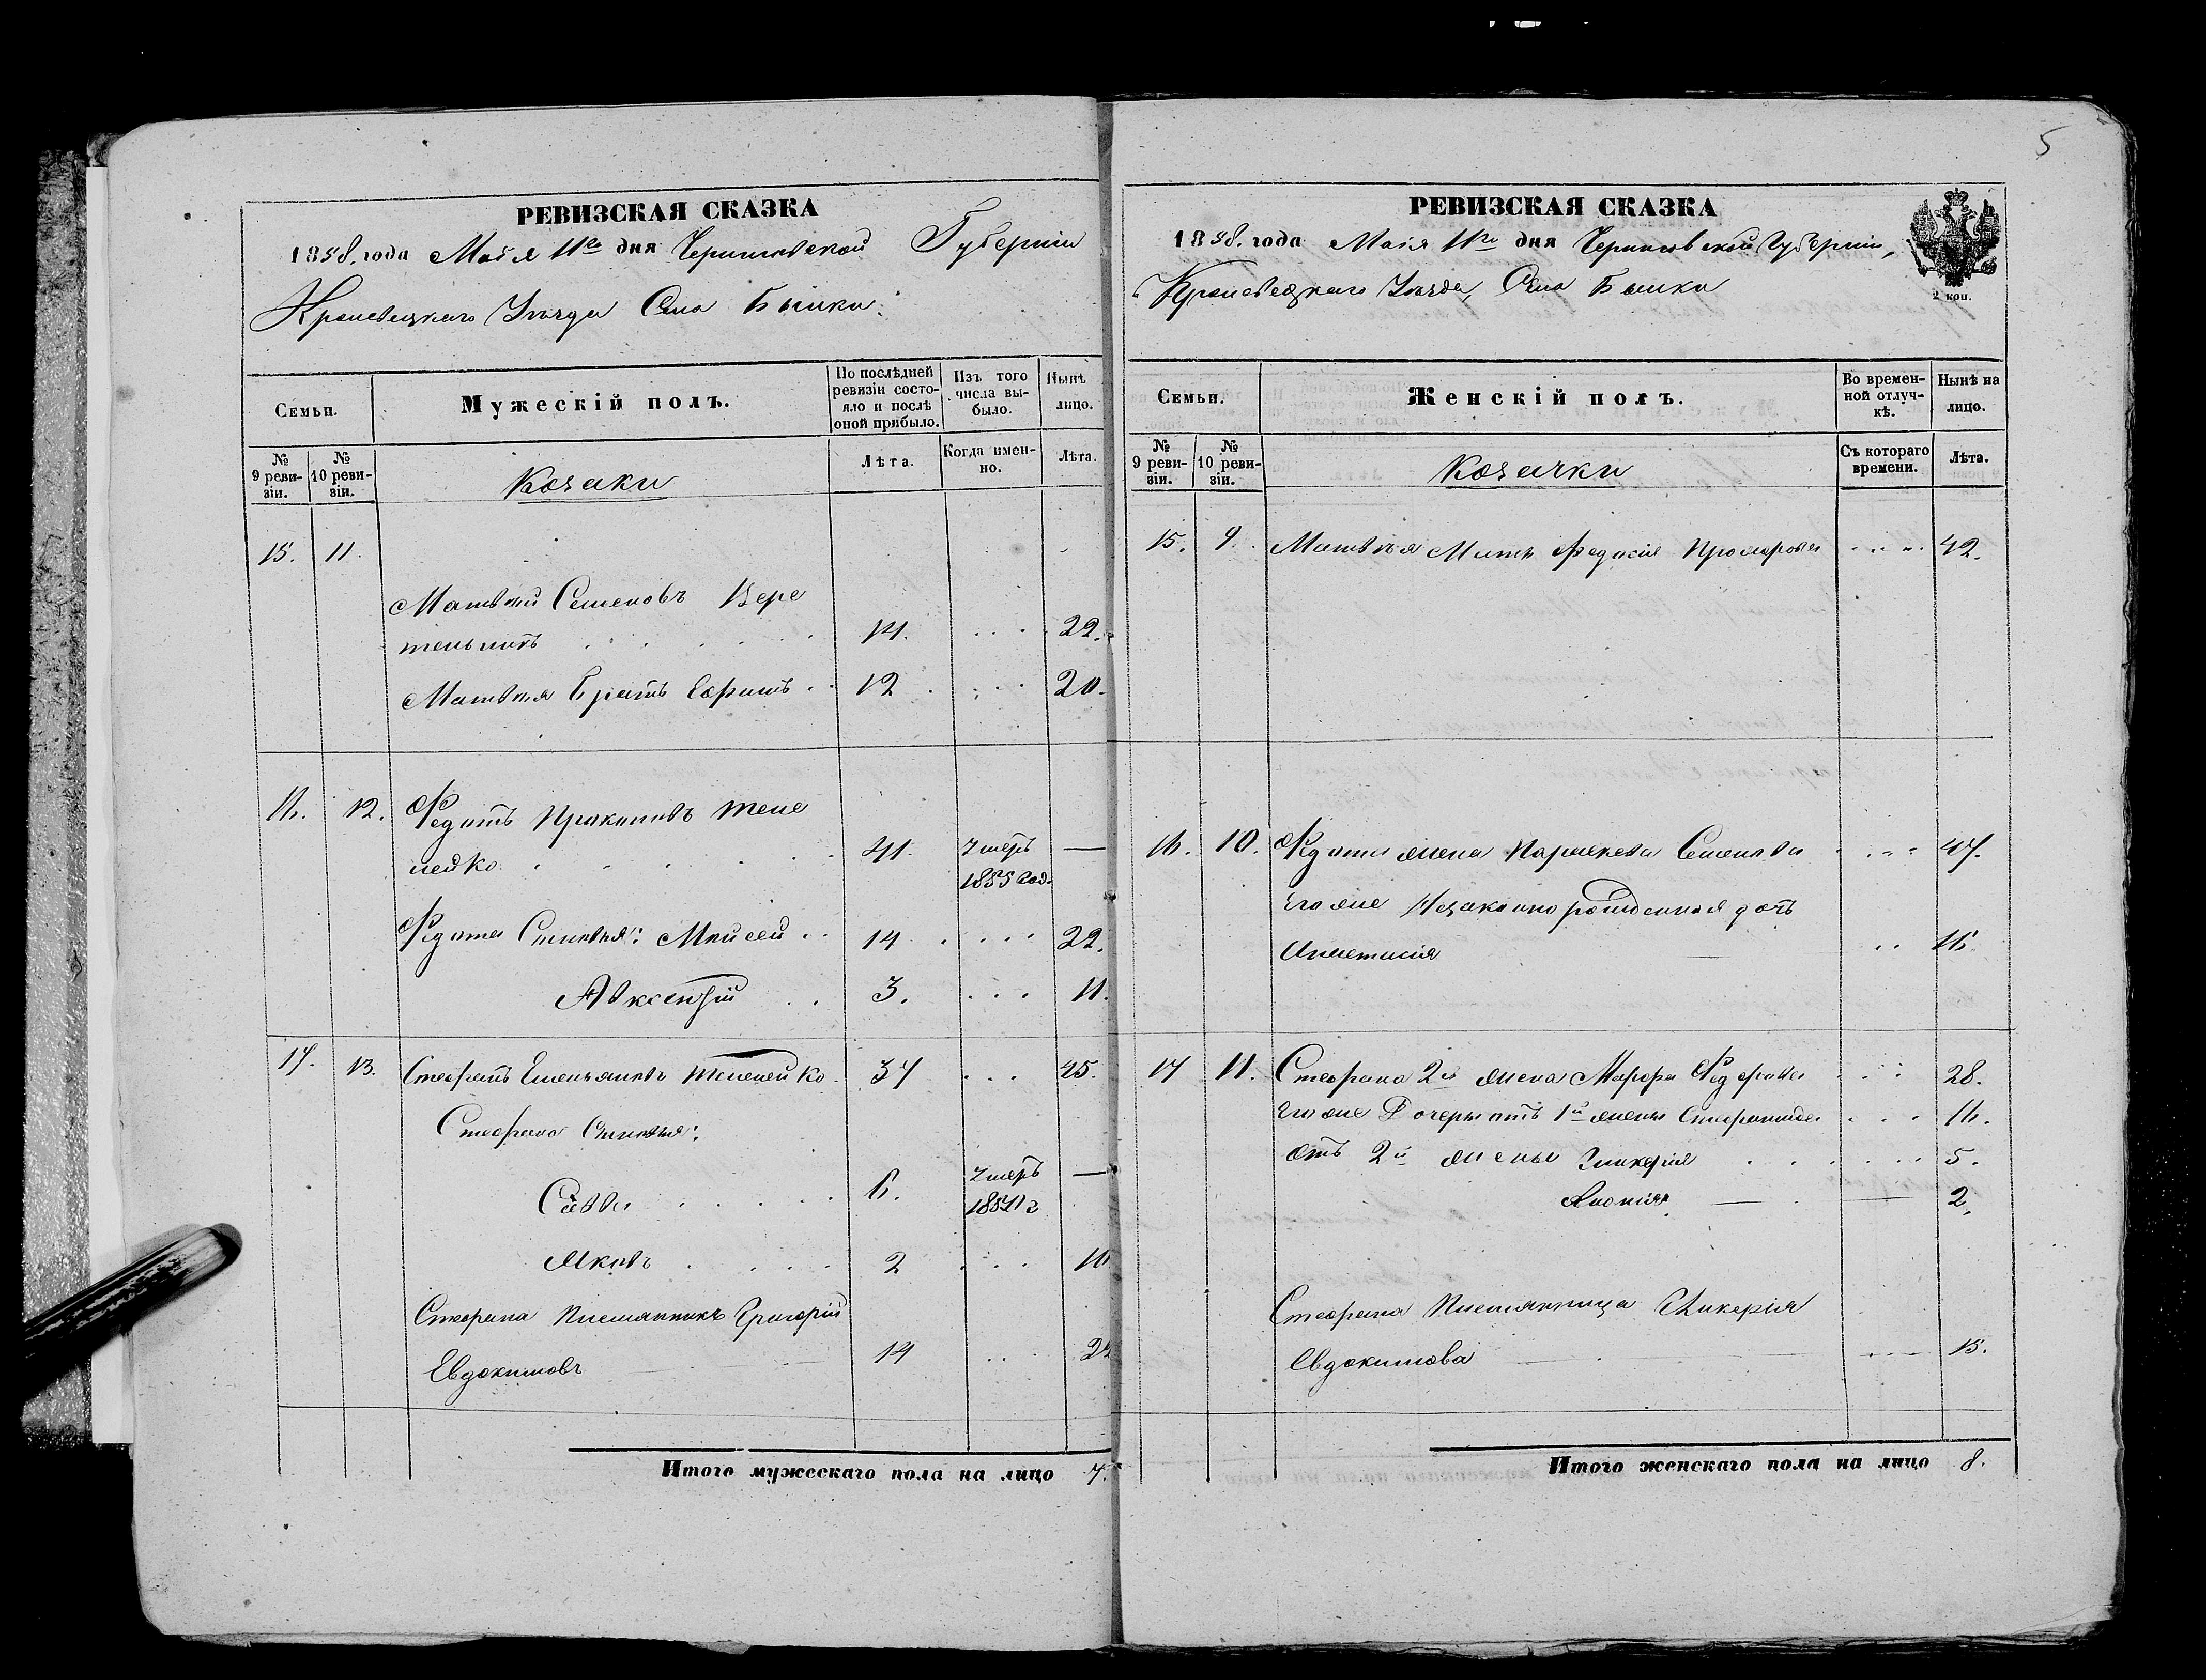 5
РЕВИЗСКАЯ СКАЗКА
1858. года Маія 11го дня Черниговской Губерніи
Кролевецкаго Уѣзда Села Бытки.
Семьи.
Мужескій полъ.
По послѣдней ревизіи состояло и послѣ оной прибыло.
Изъ того числа выбыло.
Нынѣ лицо.
№ 9 ревизіи.
№ 10 ревизіи.
Козаки
Лѣта.
Когда именно.
Лѣта.
15. 11.
Матвѣй Семеновъ Вере
тельникъ 14. 22.
Матвѣя Братъ Ефимъ 12 20.
16. 12. Федотъ Прокоповъ
41. умеръ —
1855 год.
Федота Сыновья: Мойсей 14 22.
Авксентій 3. 11.
17. 13. Стефанъ Емельяновъ 37 45.
Стефана Сыновья:
Савва 6. умеръ —
Яковъ 2 10
Стефана Племянникъ Григорій
Евдокимовъ 14 22
Итого мужескаго пола на лицо 7.
РЕВИЗСКАЯ СКАЗКА
1858. года Маія 11го дня Черниговской Губерніи,
Кролевецкаго Уѣзда, Села Бытки
2 коп.
Семьи.
Женскій полъ.
Во временной отлучкѣ.
Нынѣ на лицо.
№ 9 ревизіи.
№ 10 ревизіи.
Козачки
Съ котораго времени.
Лѣта.
15. 9. Матвѣя Мать Федосія 42.
16. 10. Федота жена Параскева Семенова 47.
Его же Незаконнорожденная дочь
Анастасія 16.
17 11. Стефана 2я жена Марфа 28.
Его же Дочери отъ 1й жены Степанида 16.
Отъ 2й жены Гликерія 5.
2.
Стефана Племянница Гликерія
Евдокимова 15.
Итого женскаго пола на лицо 8.